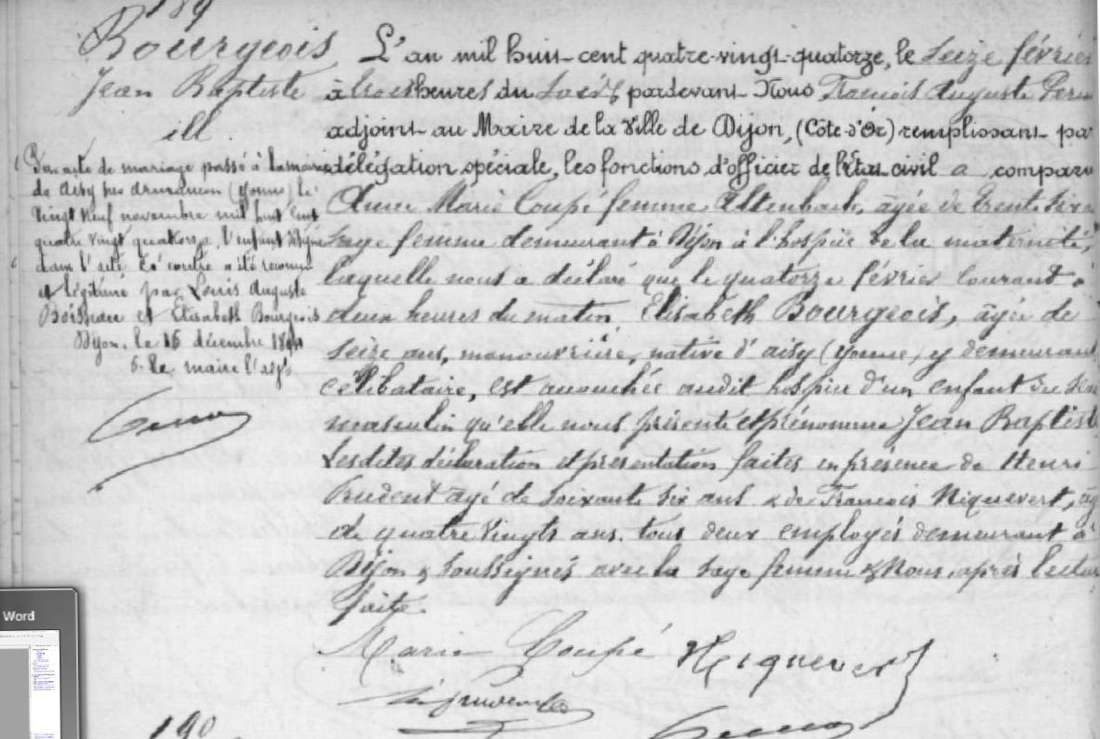 189
Bourgeois
Jean Baptiste
ill.
D'un acte de mariage passé à la mairie
de Aisy sur Armançon (Yonne) le
vingt neuf novembre mil huit cent
quatre vingt quatorze, l'enfant désigné
dans l'acte ci contre a été reconnu
et légitimé par Louis Auguste
et Elisabeth Bourgeois
Dijon, le 15 décembre 1894
maire l'adj
L'an mil huit-cent quatre-vingt-quatorze, le seize février
à trois heures du soir, pardevant Nous François Auguste
adjoint au Maire de la Ville de Dijon, (Côte-d'Or) remplissant pa
délégation spéciale, les fonctions d'officier de l'état civil a comparu
Anne Marie Coupé femme Altenbach, âgée de trente six a
sage femme demeurant à Dijon à l'hospice de la maternité,
laquelle nous a déclaré que le quatorze février courant à
deux heures du matin Elisabeth Bourgeois, âgée de
seize ans, manouvrière, native d'aisy (Yonne) y demeurant
célibataire, est accouchée audit hospice d'un enfant du sexe
masculin qu'elle nous présente et prénomme Jean Baptiste
Lesdites déclaration et présentation faites en présence de Henri
Prudent âgé de soixante six ans & de François Niquevert, âg
de quatre vingts ans. tous deux employés demeurant à
Dijon & soussignés avec la sage femme & Nous, après lecture
faite.
Marie Coupé Niquevert
Prudent
190
Word